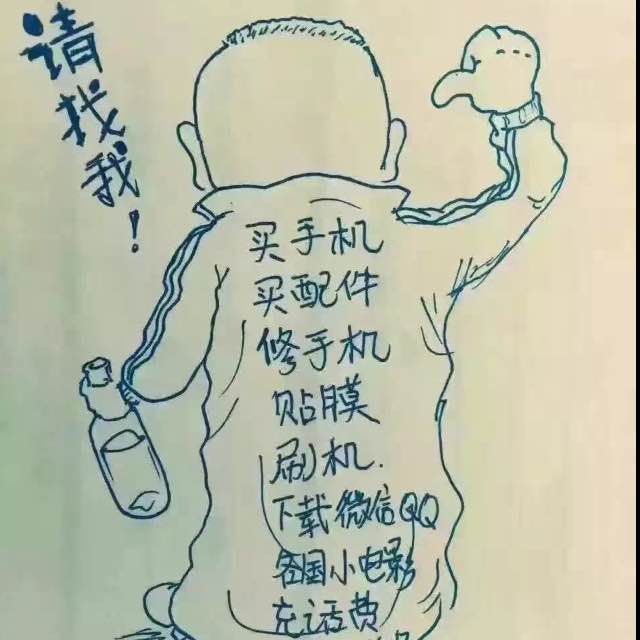 请找我！
买手机
买配件
修手机
贴膜
刷机.
下载微信QQ
各国小电影
充话费